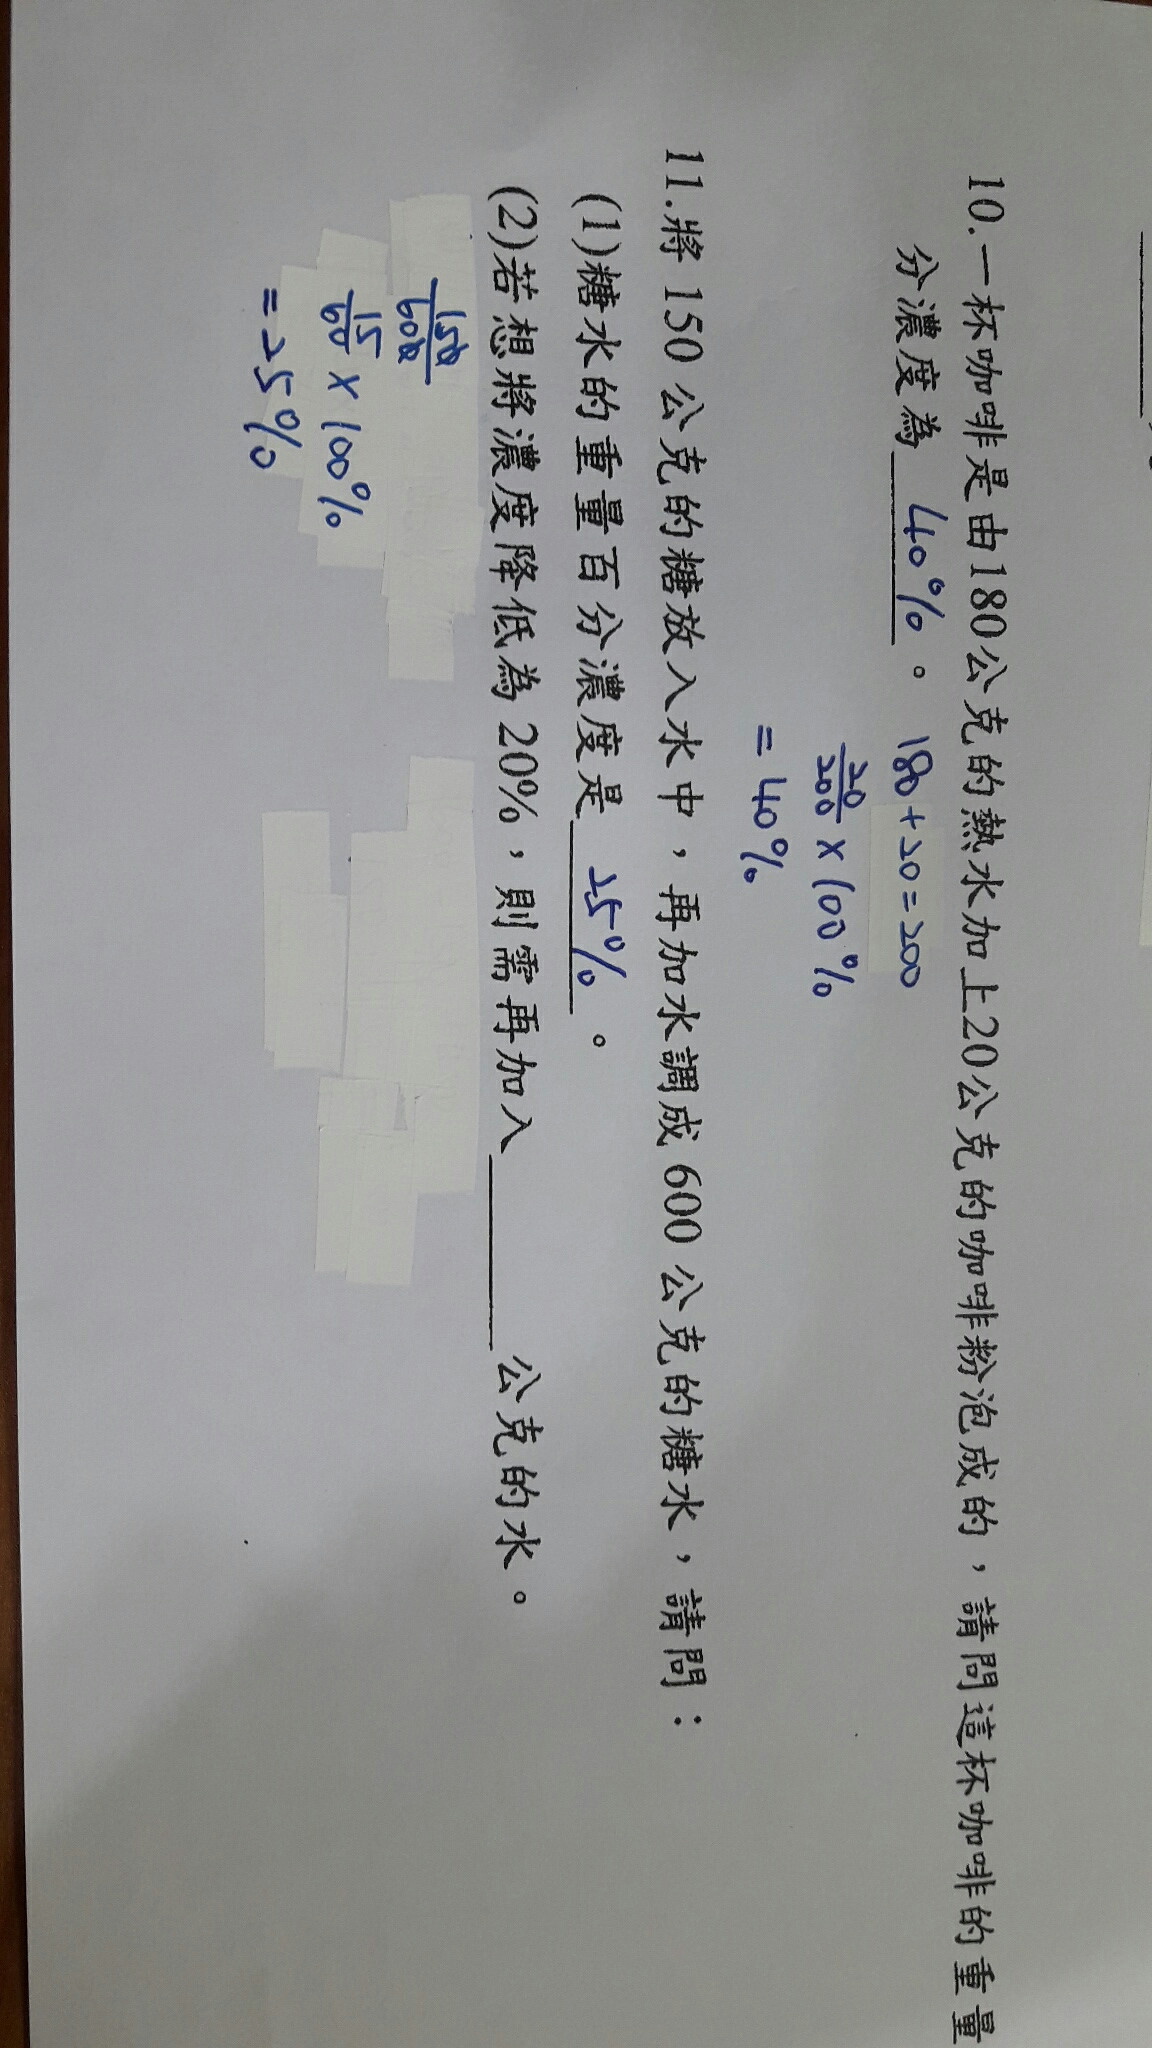 10.一杯咖啡是由180公克的熱水加上20公克的咖啡粉泡成的，請問這杯咖啡的重量
分濃度為 40% 。 180+20=200
20/200 × 100%
= 40%
11.將 150 公克的糖放入水中，再加水調成 600 公克的糖水，請問：
(1)糖水的重量百分濃度是 25% 。
(2)若想將濃度降低為 20%，則需再加入 公克的水。
150/600
15/60 × 100%
= 25%